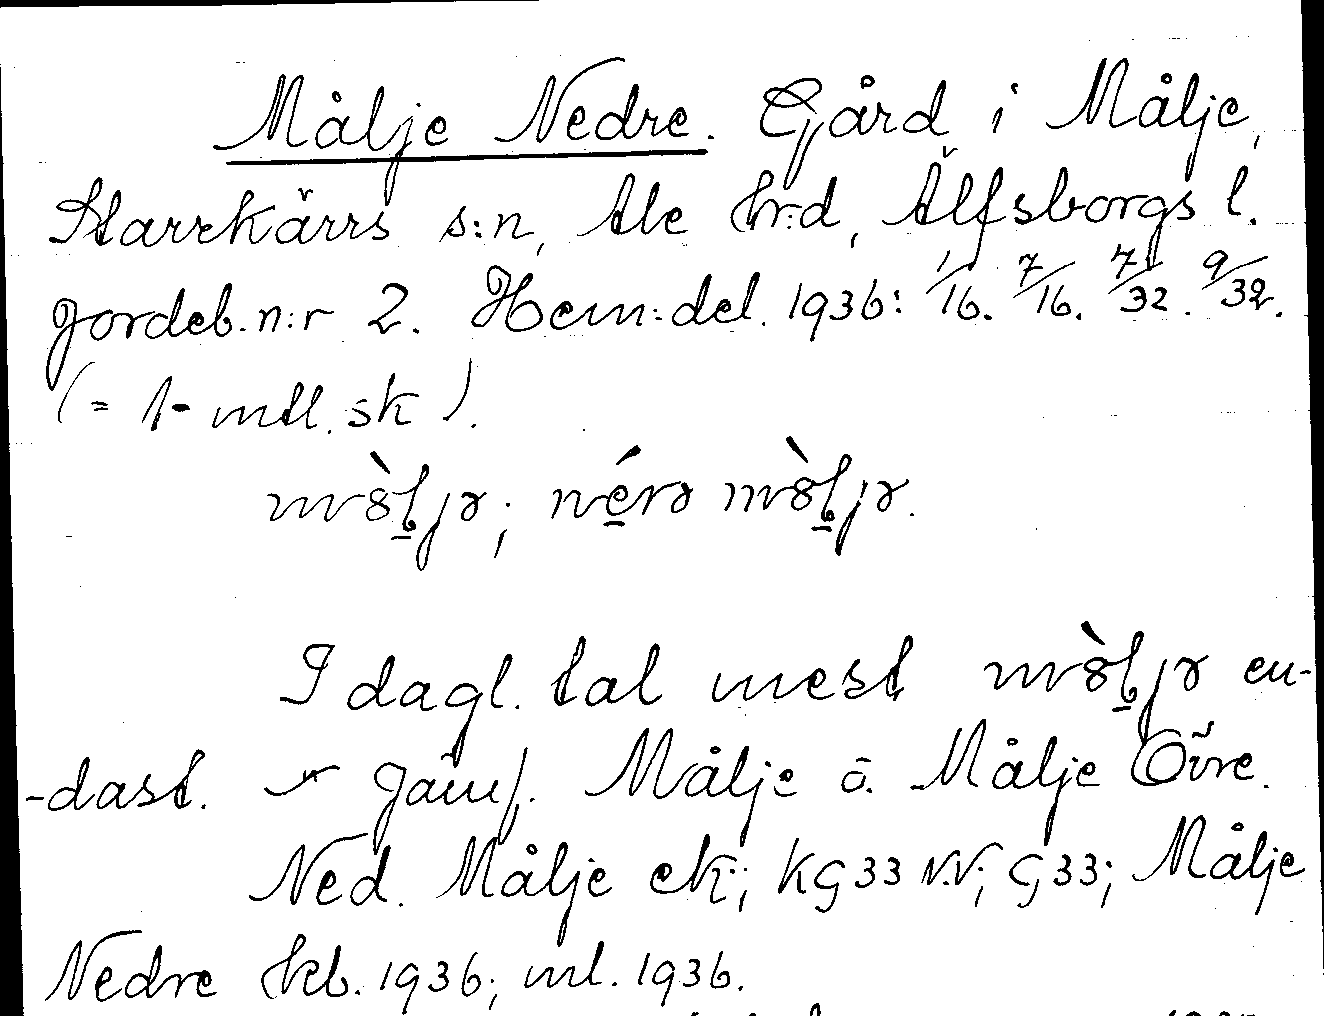 Målje Nedre. Gård i Målje,
Starrkärrs s:n, Ale hr:d, Älfsborgs l.
Jordeb. n:r 2. Hem: del. 1936: 1/16. 7/16. 7/32. 9/32.
(= 1 mtl. sk).
I dagl. tal mest en-
-dast. – Jämf. Målje o. Målje Övre.
Ned. Målje ek; KG33 NV; G33; Målje
Nedre hkb. 1936; ml. 1936.